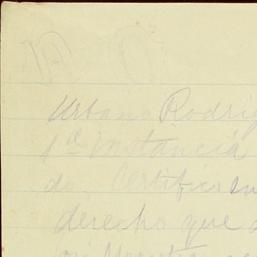 Urbano Rodrig
1ª Instancia
do, Certifico
derecho que